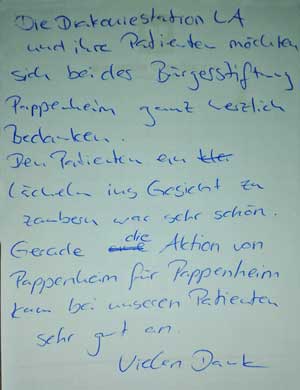 Die Diakoniestation LA
und ihre Patienten möchten
sich bei des Bürgerstiftung
Pappenheim ganz herzlich
Bedanken.
Den Patienten ein
lächeln ins Gesicht zu
zaubern war sehr schön.
Gerade die Aktion von
Pappenheim für Pappenheim
kam bei unseren Patienten
sehr gut an.
Vielen Dank